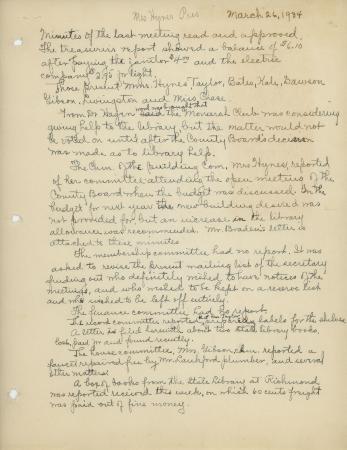 Mrs Hynes Pres March 26, 1934
Minutes of the last meeting read and approved.
The treasurers report showed a balance of $6.10
after paying the janitor 4.00 and the electric
company $2.95 for light.
Those present Mmes. Hynes, Taylor, Bates, Kale, Dawson
Gibson, Livingston and Miss Chase.
word was brought that
From Dr Warren said the Monarch Club was considering
giving help to the library, but the matter would not
be voted on until after the County Board's decision
was made as to library help.
The Com. of the building Com. Mrs Hynes, reported
of her committee attending the open meetings of the
County Board when the budget was discussed. In the
budget for next year the new building desired was
not provided for but an increase in the library
allowance was recommended. Mr. Braden's letter is
attached to these minutes
The membership committee had no report. It was
asked to revise the present mailing list of the secretary
finding out who definitely wished to have notices of the
meetings, and who wished to be kept on a reserve list
and who wished to be left off entirely.
The finance committee had no report.
The book committee reported labels for the shelves
A letter is filed herewith about two state library books,
lost, paid for and found recently.
The house committee, Mrs. Gibson, reported a
faucet repaired free by Mr. Lankford, plumber, and several
other matters.
A box of books from the State Library at Richmond
was reported received this week, on which 60 cents freight
was paid out of fine money.